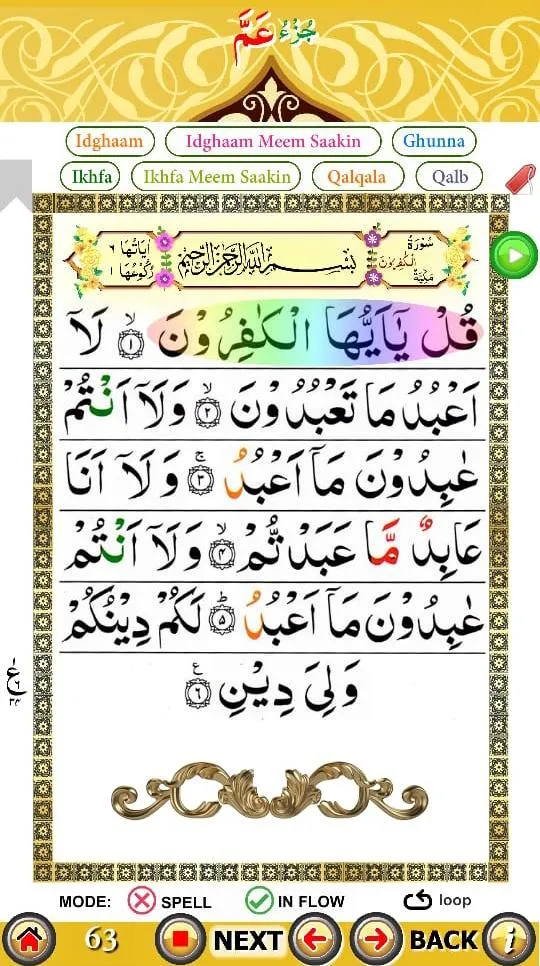 جُزْءُ عَمَّ
Idghaam Idghaam Meem Saakin Ghunna
Ikhfa Ikhfa Meem Saakin Qalqala Qalb
سُوْرَةُ الْكٰفِرُوْنَ مَكِّيَّةٌ
بِسْمِ اللّٰهِ الرَّحْمٰنِ الرَّحِيْمِ
اٰيَاتُهَا ٦
رُكُوْعُهَا ١
قُلْ يٰٓاَيُّهَا الْكٰفِرُوْنَ ۙ‏﴿۱﴾ لَاۤ
اَعْبُدُ مَا تَعْبُدُوْنَ ۙ‏﴿۲﴾ وَلَاۤ اَنْتُمْ
عٰبِدُوْنَ مَاۤ اَعْبُدُ ۚ‏﴿۳﴾ وَلَاۤ اَنَا
عَابِدٌ مَّا عَبَدْتُّمْ ۙ‏﴿۴﴾ وَلَاۤ اَنْتُمْ
عٰبِدُوْنَ مَاۤ اَعْبُدُ ؕ‏﴿۵﴾ لَكُمْ دِيْنُكُمْ
وَلِىَ دِيْنِ ‏﴿۶﴾ ع
MODE: SPELL IN FLOW loop
63 NEXT BACK i